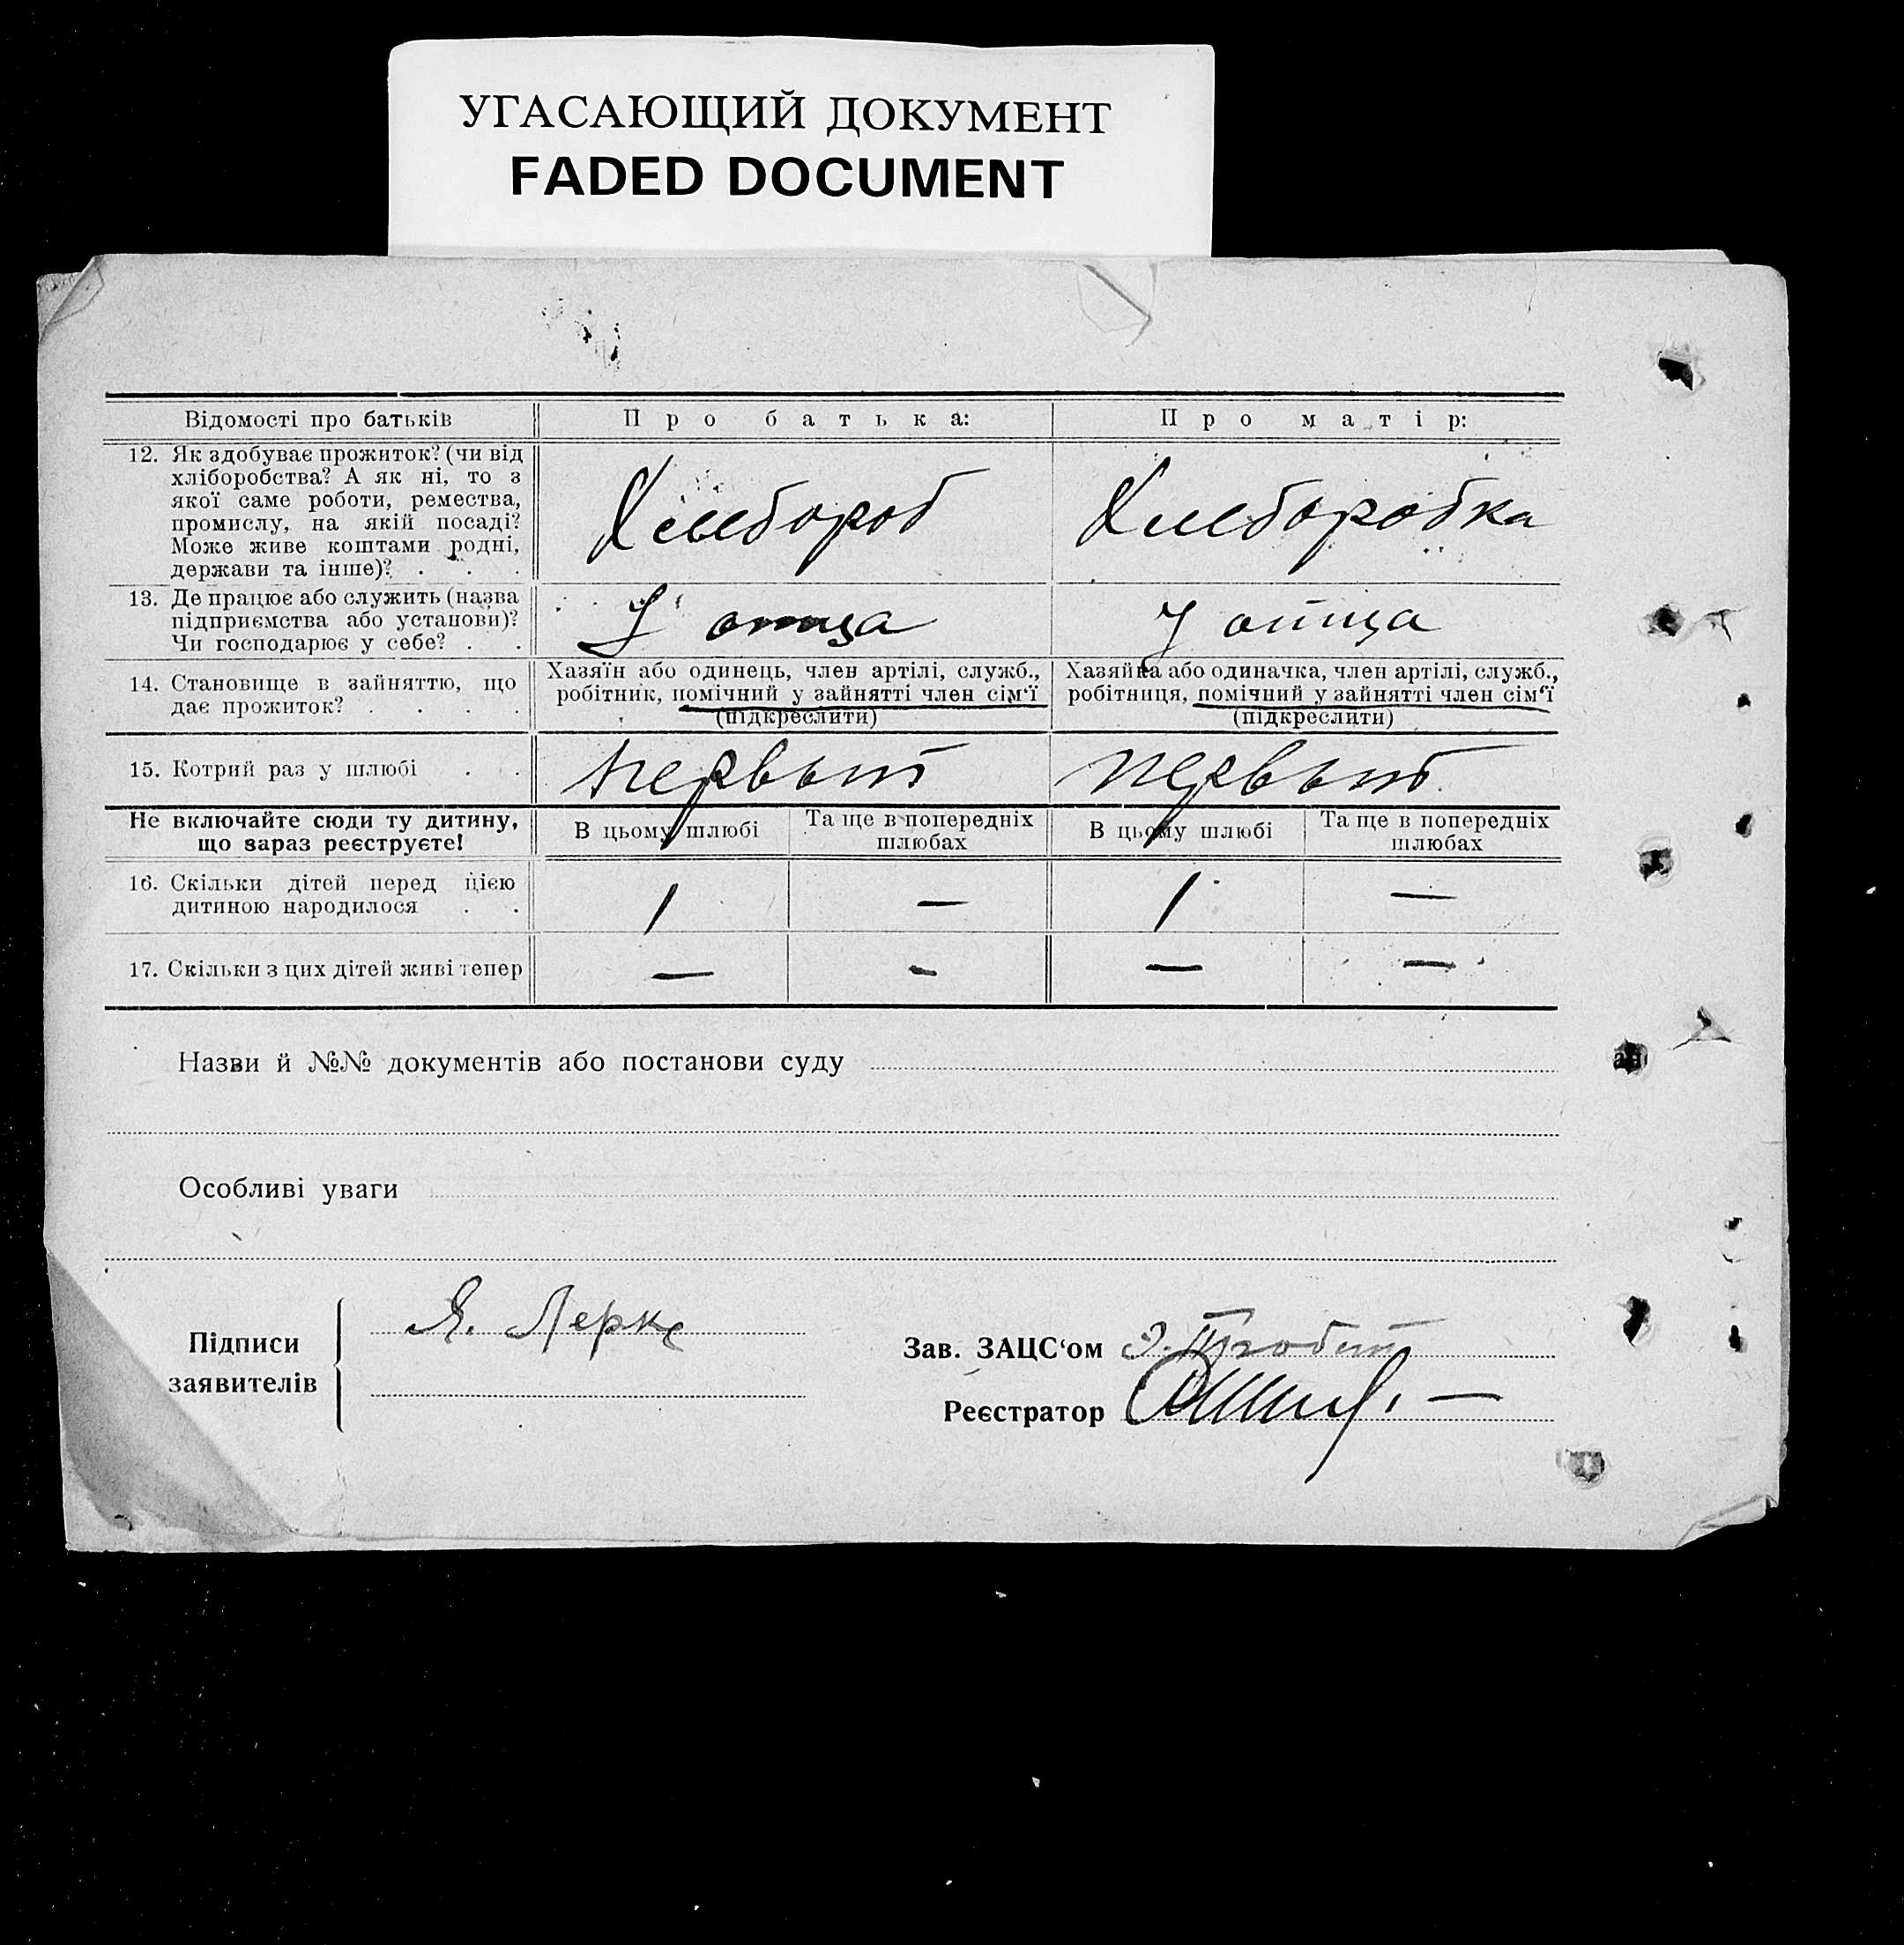 УГАСАЮЩИЙ ДОКУМЕНТ
FADED DOCUMENT
Відомості про батьків
Про батька:
Про матір:
12. Як здобуває прожиток? (чи від
хліборобства? А як ні, то з
якої саме роботи, ремества,
промислу, на якій посаді?
Може живе коштами родні,
держави та інше)? . . .
Хлебороб
Хлеборобка
13. Де працює або служить (назва
підприємства або установи)?
Чи господарює у себе? . .
У отца
У отца
14. Становище в зайняттю, що
дає прожиток? . . . .
Хазяїн або одинець, член артілі, служб.,
робітник, помічний у зайнятті член сім‘ї
(підкреслити)
Хазяйка або одиначка, член артілі, служб.,
робітниця, помічний у зайнятті член сім‘ї
(підкреслити)
15. Котрий раз у шлюбі . .
первый
первый
Не включайте сюди ту дитину,
що зараз реєструєте!
В цьому шлюбі
Та ще в попередніх
шлюбах
В цьому шлюбі
Та ще в попередніх
шлюбах
16. Скільки дітей перед цією
дитиною народилося . .
1
—
1
—
17. Скільки з цих дітей живі тепер
—
-
—
—
Назви й №№ документів або постанови суду
Особливі уваги
Підписи
заявителів
Я. Лерке
Зав. ЗАЦС‘ом
Реєстратор